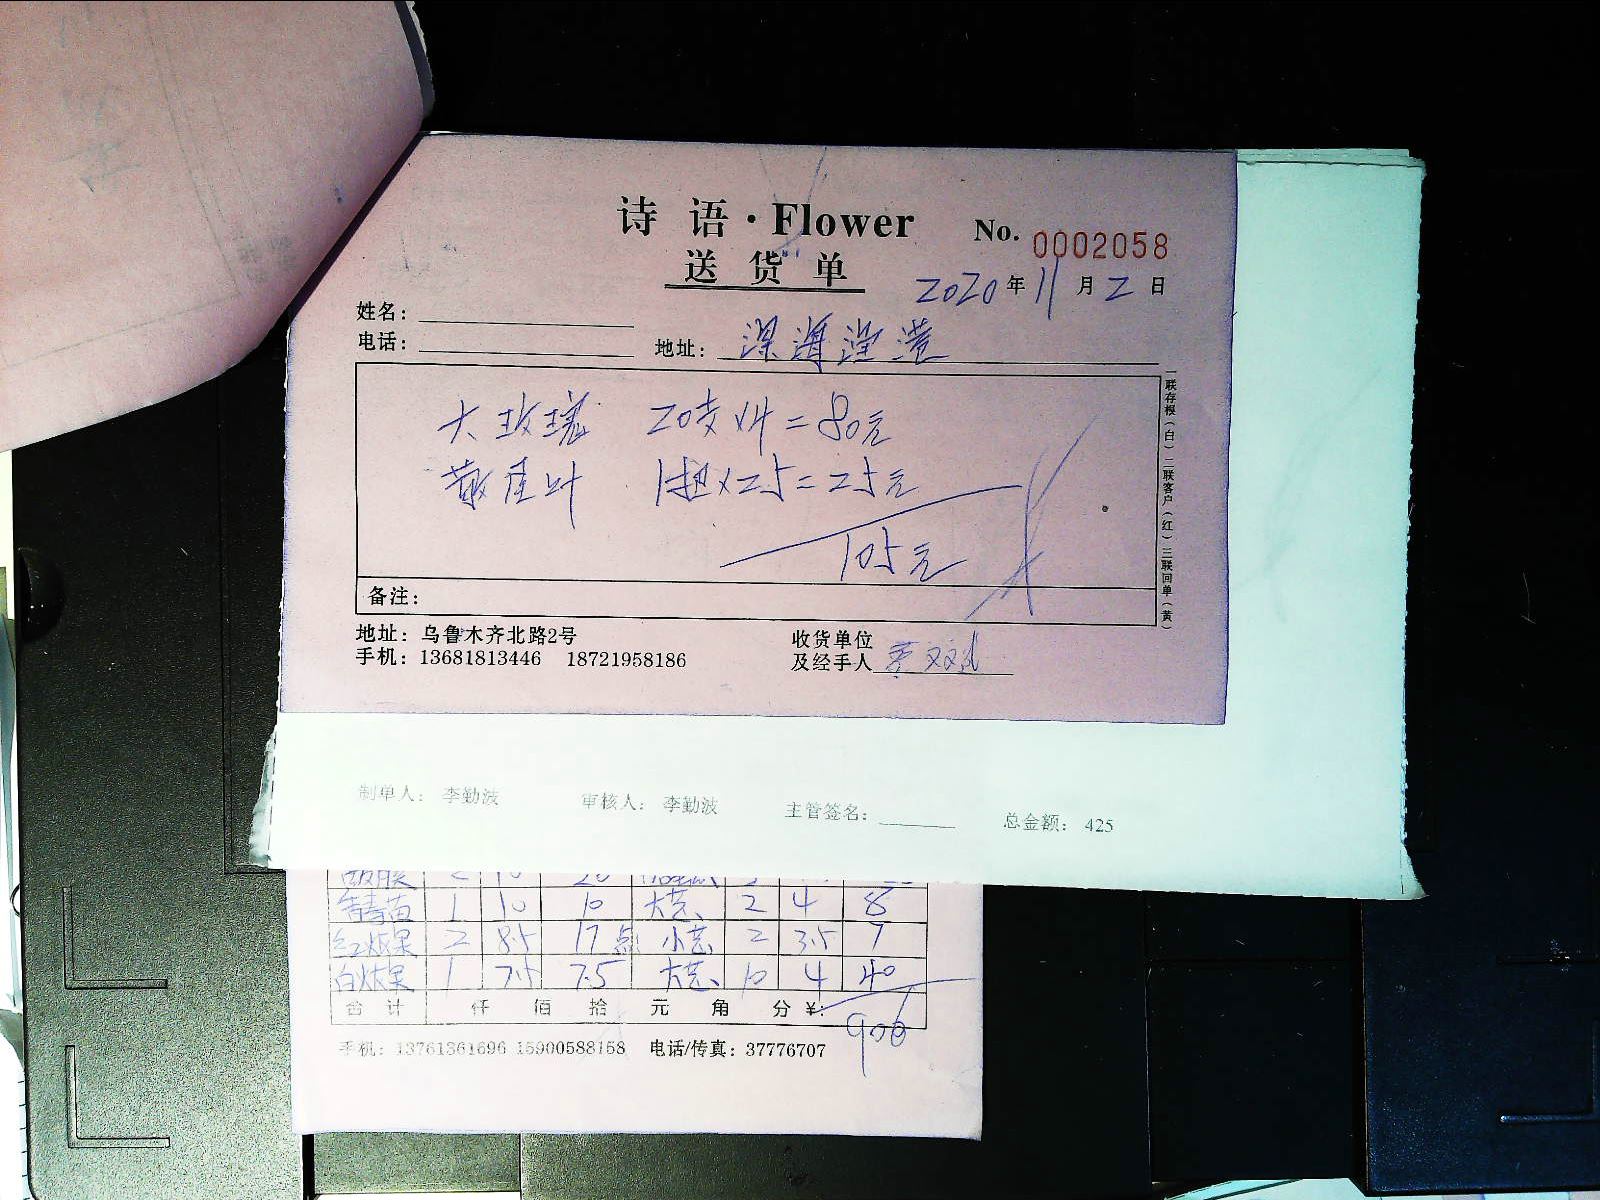 诗语·Flower No. 0002058
送货单
2020年11月2日
姓名：
电话： 地址：深海淫港
大玫瑰 20支×4=80元
散尾叶 1扎×25=25元
105元
备注：
一联存根（白）二联客户（红）三联回单（黄）
地址：乌鲁木齐北路2号 收货单位
手机：13681813446 18721958186 及经手人
制单人：李勤波 审核人：李勤波 主管签名： 总金额：425
青毒苗 1 10 10 大艺 2 4 8
红火果 2 8.5 17 小艺 2 3.5 7
白火果 1 7.5 7.5 大艺 10 4 40
合计 仟 佰 拾 元 角 分 ¥: 900
手机：13761361696 15900588158 电话/传真：37776707